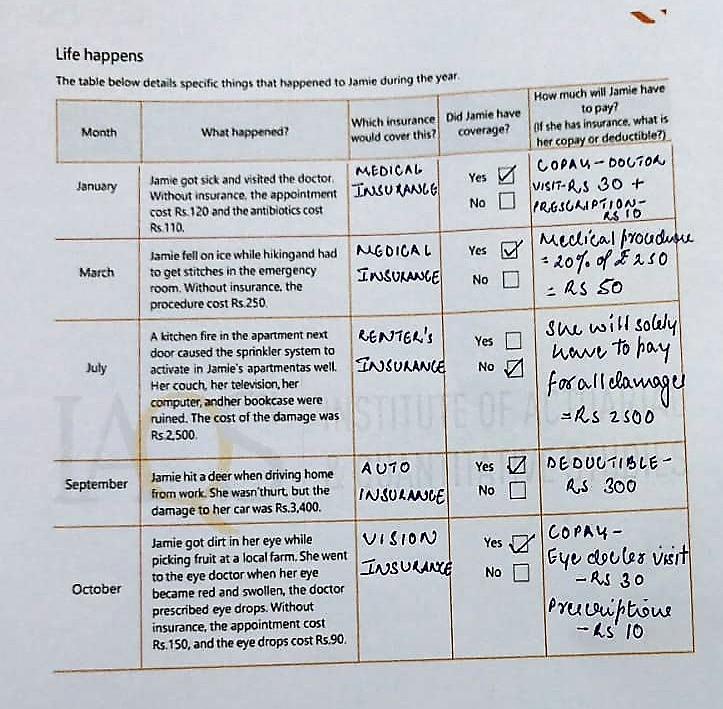 Life happens
The table below details specific things that happened to Jamie during the year.
Month
What happened?
Which insurance
would cover this?
Did Jamie have
coverage?
How much will Jamie have
to pay?
(If she has insurance, what is
her copay or deductible?)
January
Jamie got sick and visited the doctor.
Without insurance, the appointment
cost Rs.120 and the antibiotics cost
Rs.110.
MEDICAL
INSURANCE
Yes ☑
No ☐
COPAY - DOCTOR
VISIT-RS 30 +
PRESCRIPTION-
RS 10
March
Jamie fell on ice while hikingand had
to get stitches in the emergency
room. Without insurance, the
procedure cost Rs.250.
MEDICAL
INSURANCE
Yes ☑
No ☐
Medical procedure
= 20% of £ 250
= RS 50
July
A kitchen fire in the apartment next
door caused the sprinkler system to
activate in Jamie's apartmentas well.
Her couch, her television, her
computer, andher bookcase were
ruined. The cost of the damage was
Rs.2,500.
RENTER'S
INSURANCE
Yes ☐
No ☑
She will solely
have to pay
for all damages
=RS 2500
September
Jamie hit a deer when driving home
from work. She wasn'thurt, but the
damage to her car was Rs.3,400.
AUTO
INSURANCE
Yes ☑
No ☐
DEDUCTIBLE -
RS 300
October
Jamie got dirt in her eye while
picking fruit at a local farm. She went
to the eye doctor when her eye
became red and swollen, the doctor
prescribed eye drops. Without
insurance, the appointment cost
Rs.150, and the eye drops cost Rs.90.
VISION
INSURANCE
Yes ☑
No ☐
COPAY-
Eye doctor visit
- RS 30
Prescriptions
- RS 10
INSTITUTE OF